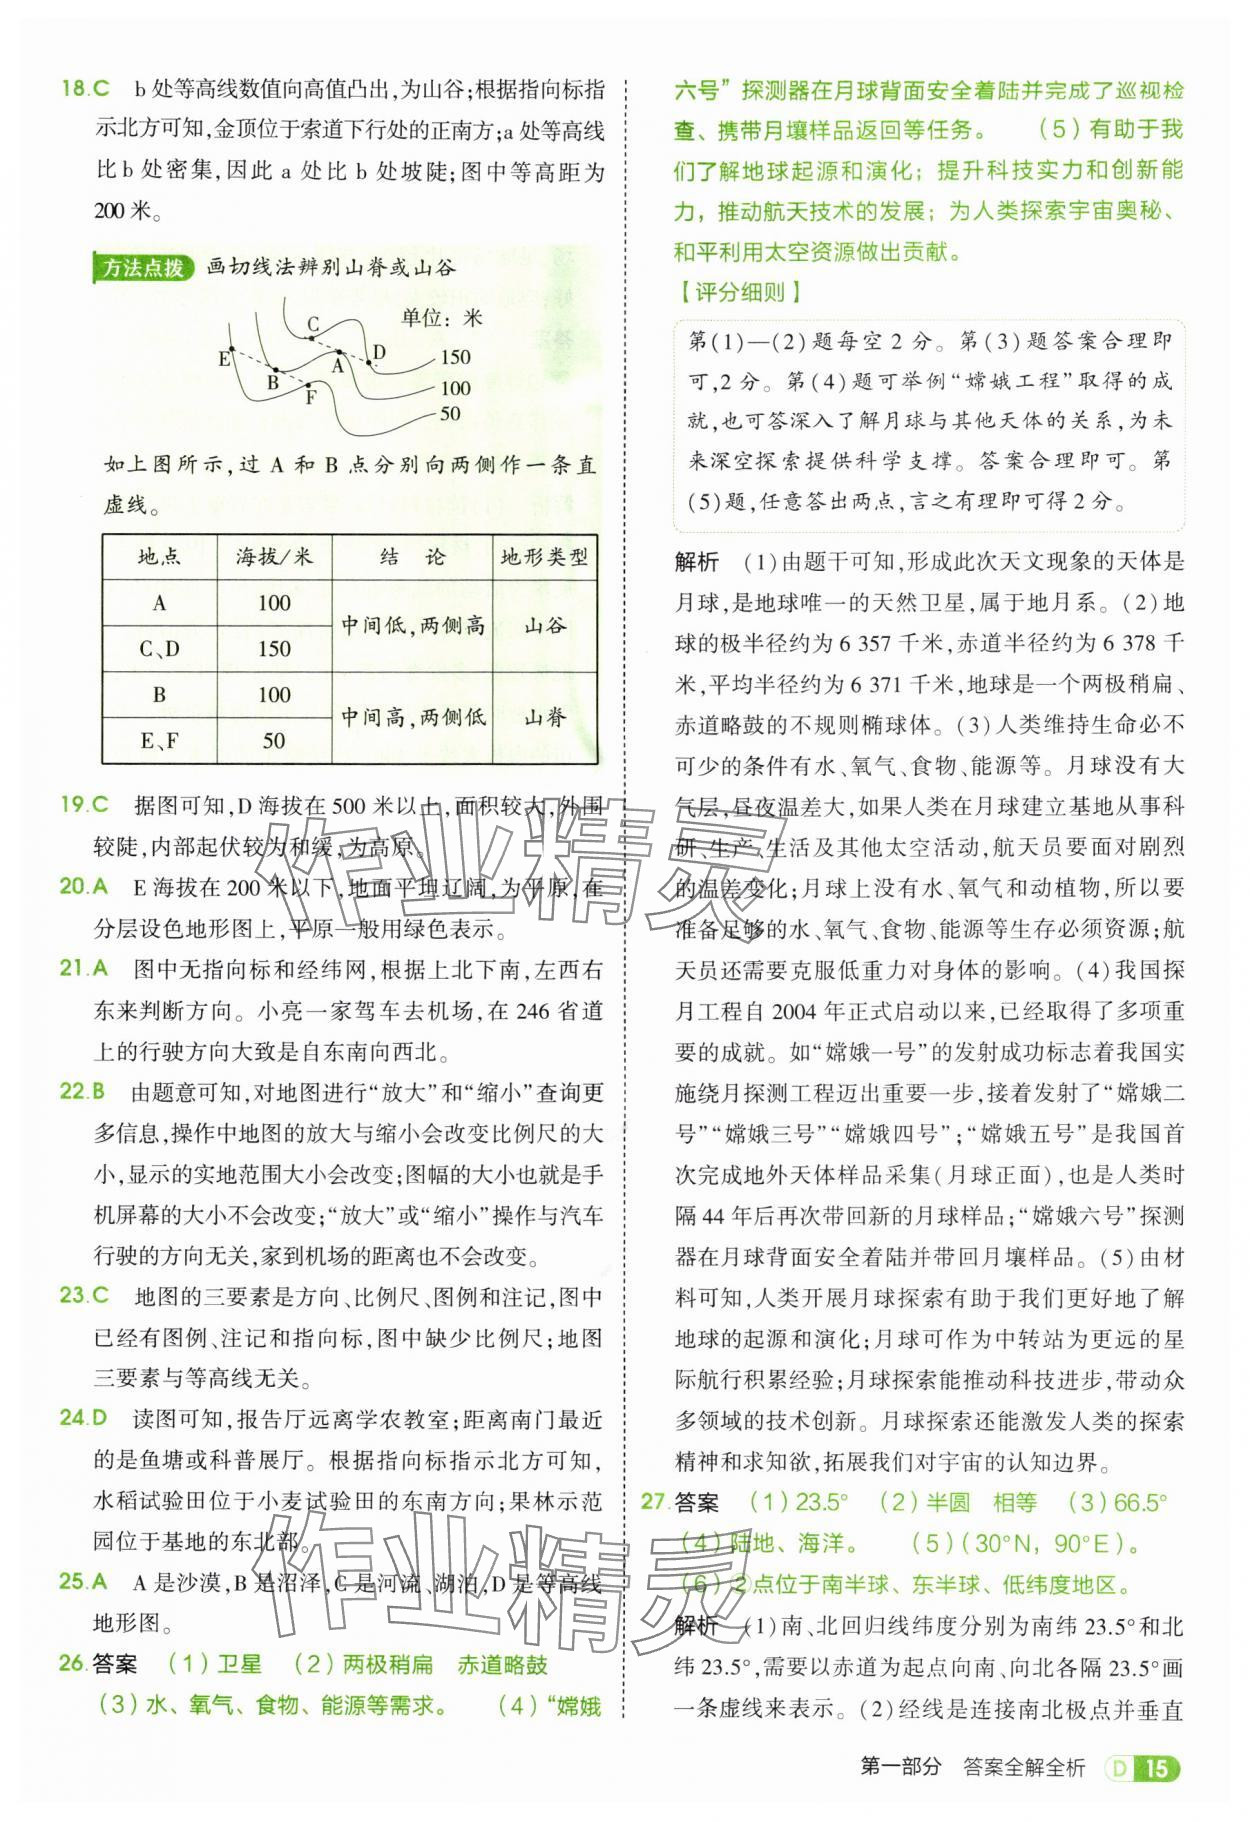 18.C b处等高线数值向高值凸出,为山谷;根据指向标指
示北方可知,金顶位于索道下行处的正南方;a处等高线
比b处密集,因此a处比b处坡陡;图中等高距为
200米。
方法点拨 画切线法辨别山脊或山谷
单位:米
C
E
A
D
150
B
100
F
50
如上图所示,过A和B点分别向两侧作一条直
虚线。
地点 海拔/米 结 论 地形类型
A 100 中间低,两侧高 山谷
C、D 150
B 100 中间高,两侧低 山脊
E、F 50
19.C 据图可知,D海拔在500米以上,面积较大,外围
较陡,内部起伏较为和缓,为高原。
20.A E海拔在200米以下,地面平坦辽阔,为平原,在
分层设色地形图上,平原一般用绿色表示。
21.A 图中无指向标和经纬网,根据上北下南,左西右
东来判断方向。小亮一家驾车去机场,在246省道
上的行驶方向大致是自东南向西北。
22.B 由题意可知,对地图进行“放大”和“缩小”查询更
多信息,操作中地图的放大与缩小会改变比例尺的大
小,显示的实地范围大小会改变;图幅的大小也就是手
机屏幕的大小不会改变;“放大”或“缩小”操作与汽车
行驶的方向无关,家到机场的距离也不会改变。
23.C 地图的三要素是方向、比例尺、图例和注记,图中
已经有图例、注记和指向标,图中缺少比例尺;地图
三要素与等高线无关。
24.D 读图可知,报告厅远离学农教室;距离南门最近
的是鱼塘或科普展厅。根据指向标指示北方可知,
水稻试验田位于小麦试验田的东南方向;果林示范
园位于基地的东北部。
25.A A是沙漠,B是沼泽,C是河流、湖泊,D是等高线
地形图。
26.答案 (1)卫星 (2)两极稍扁 赤道略鼓
(3)水、氧气、食物、能源等需求。 (4)“嫦娥
六号”探测器在月球背面安全着陆并完成了巡视检
查、携带月壤样品返回等任务。 (5)有助于我
们了解地球起源和演化;提升科技实力和创新能
力,推动航天技术的发展;为人类探索宇宙奥秘、
和平利用太空资源做出贡献。
【评分细则】
第(1)—(2)题每空2分。第(3)题答案合理即
可,2分。第(4)题可举例“嫦娥工程”取得的成
就,也可答深入了解月球与其他天体的关系,为未
来深空探索提供科学支撑。答案合理即可。第
(5)题,任意答出两点,言之有理即可得2分。
解析 (1)由题干可知,形成此次天文现象的天体是
月球,是地球唯一的天然卫星,属于地月系。(2)地
球的极半径约为6 357千米,赤道半径约为6 378千
米,平均半径约为6 371千米,地球是一个两极稍扁、
赤道略鼓的不规则椭球体。(3)人类维持生命必不
可少的条件有水、氧气、食物、能源等。月球没有大
气层,昼夜温差大,如果人类在月球建立基地从事科
研、生产、生活及其他太空活动,航天员要面对剧烈
的温差变化;月球上没有水、氧气和动植物,所以要
准备足够的水、氧气、食物、能源等生存必须资源;航
天员还需要克服低重力对身体的影响。(4)我国探
月工程自2004年正式启动以来,已经取得了多项重
要的成就。如“嫦娥一号”的发射成功标志着我国实
施绕月探测工程迈出重要一步,接着发射了“嫦娥二
号”“嫦娥三号”“嫦娥四号”;“嫦娥五号”是我国首
次完成地外天体样品采集(月球正面),也是人类时
隔44年后再次带回新的月球样品;“嫦娥六号”探测
器在月球背面安全着陆并带回月壤样品。(5)由材
料可知,人类开展月球探索有助于我们更好地了解
地球的起源和演化;月球可作为中转站为更远的星
际航行积累经验;月球探索能推动科技进步,带动众
多领域的技术创新。月球探索还能激发人类的探索
精神和求知欲,拓展我们对宇宙的认知边界。
27.答案 (1)23.5° (2)半圆 相等 (3)66.5°
(4)陆地、海洋。 (5)(30°N,90°E)。
(6)②点位于南半球、东半球、低纬度地区。
解析 (1)南、北回归线纬度分别为南纬23.5°和北
纬23.5°,需要以赤道为起点向南、向北各隔23.5°画
一条虚线来表示。(2)经线是连接南北极点并垂直
作业精灵
作业精灵
第一部分 答案全解全析 D 15